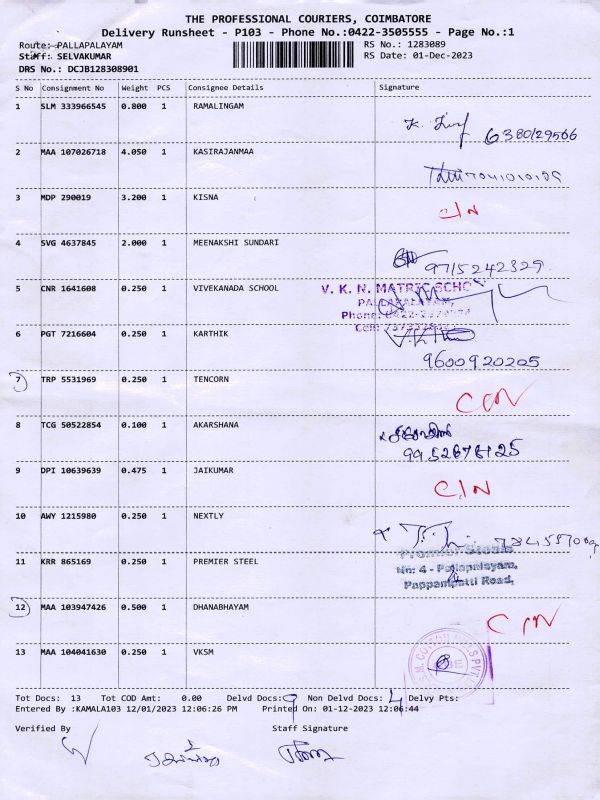 THE PROFESSIONAL COURIERS, COIMBATORE
Delivery Runsheet - P103 - Phone No.:0422-3505555 - Page No.:1
Route: PALLAPALAYAM
RS No.: 1283089
Staff: SELVAKUMAR
RS Date: 01-Dec-2023
DRS No.: DCJB128308901
S No Consignment No Weight PCS Consignee Details Signature
1 SLM 333966545 0.800 1 RAMALINGAM
6380129566
2 MAA 107026718 4.050 1 KASIRAJANMAA
3 MDP 290019 3.200 1 KISNA
C/N
4 SVG 4637845 2.000 1 MEENAKSHI SUNDARI
9715242329
5 CNR 1641608 0.250 1 VIVEKANADA SCHOOL
V. K. N. MATRIC SCHO
PALLAPALAYAM,
Phone: 0422-
Cell:
6 PGT 7216604 0.250 1 KARTHIK
9600920205
7 TRP 5531969 0.250 1 TENCORN
8 TCG 50522854 0.100 1 AKARSHANA
9952676125
9 DPI 10639639 0.475 1 JAIKUMAR
C/N
10 AWY 1215980 0.250 1 NEXTLY
11 KRR 865169 0.250 1 PREMIER STEEL
Premier Steels
No: 4 - Pallapalayam,
Pappampatti Road,
12 MAA 103947426 0.500 1 DHANABHAYAM
C/N
13 MAA 104041630 0.250 1 VKSM
Tot Docs: 13 Tot COD Amt: 0.00 Delvd Docs: 9 Non Delvd Docs: 4 Delvy Pts:
Entered By :KAMALA103 12/01/2023 12:06:26 PM Printed On: 01-12-2023 12:06:44
Verified By Staff Signature